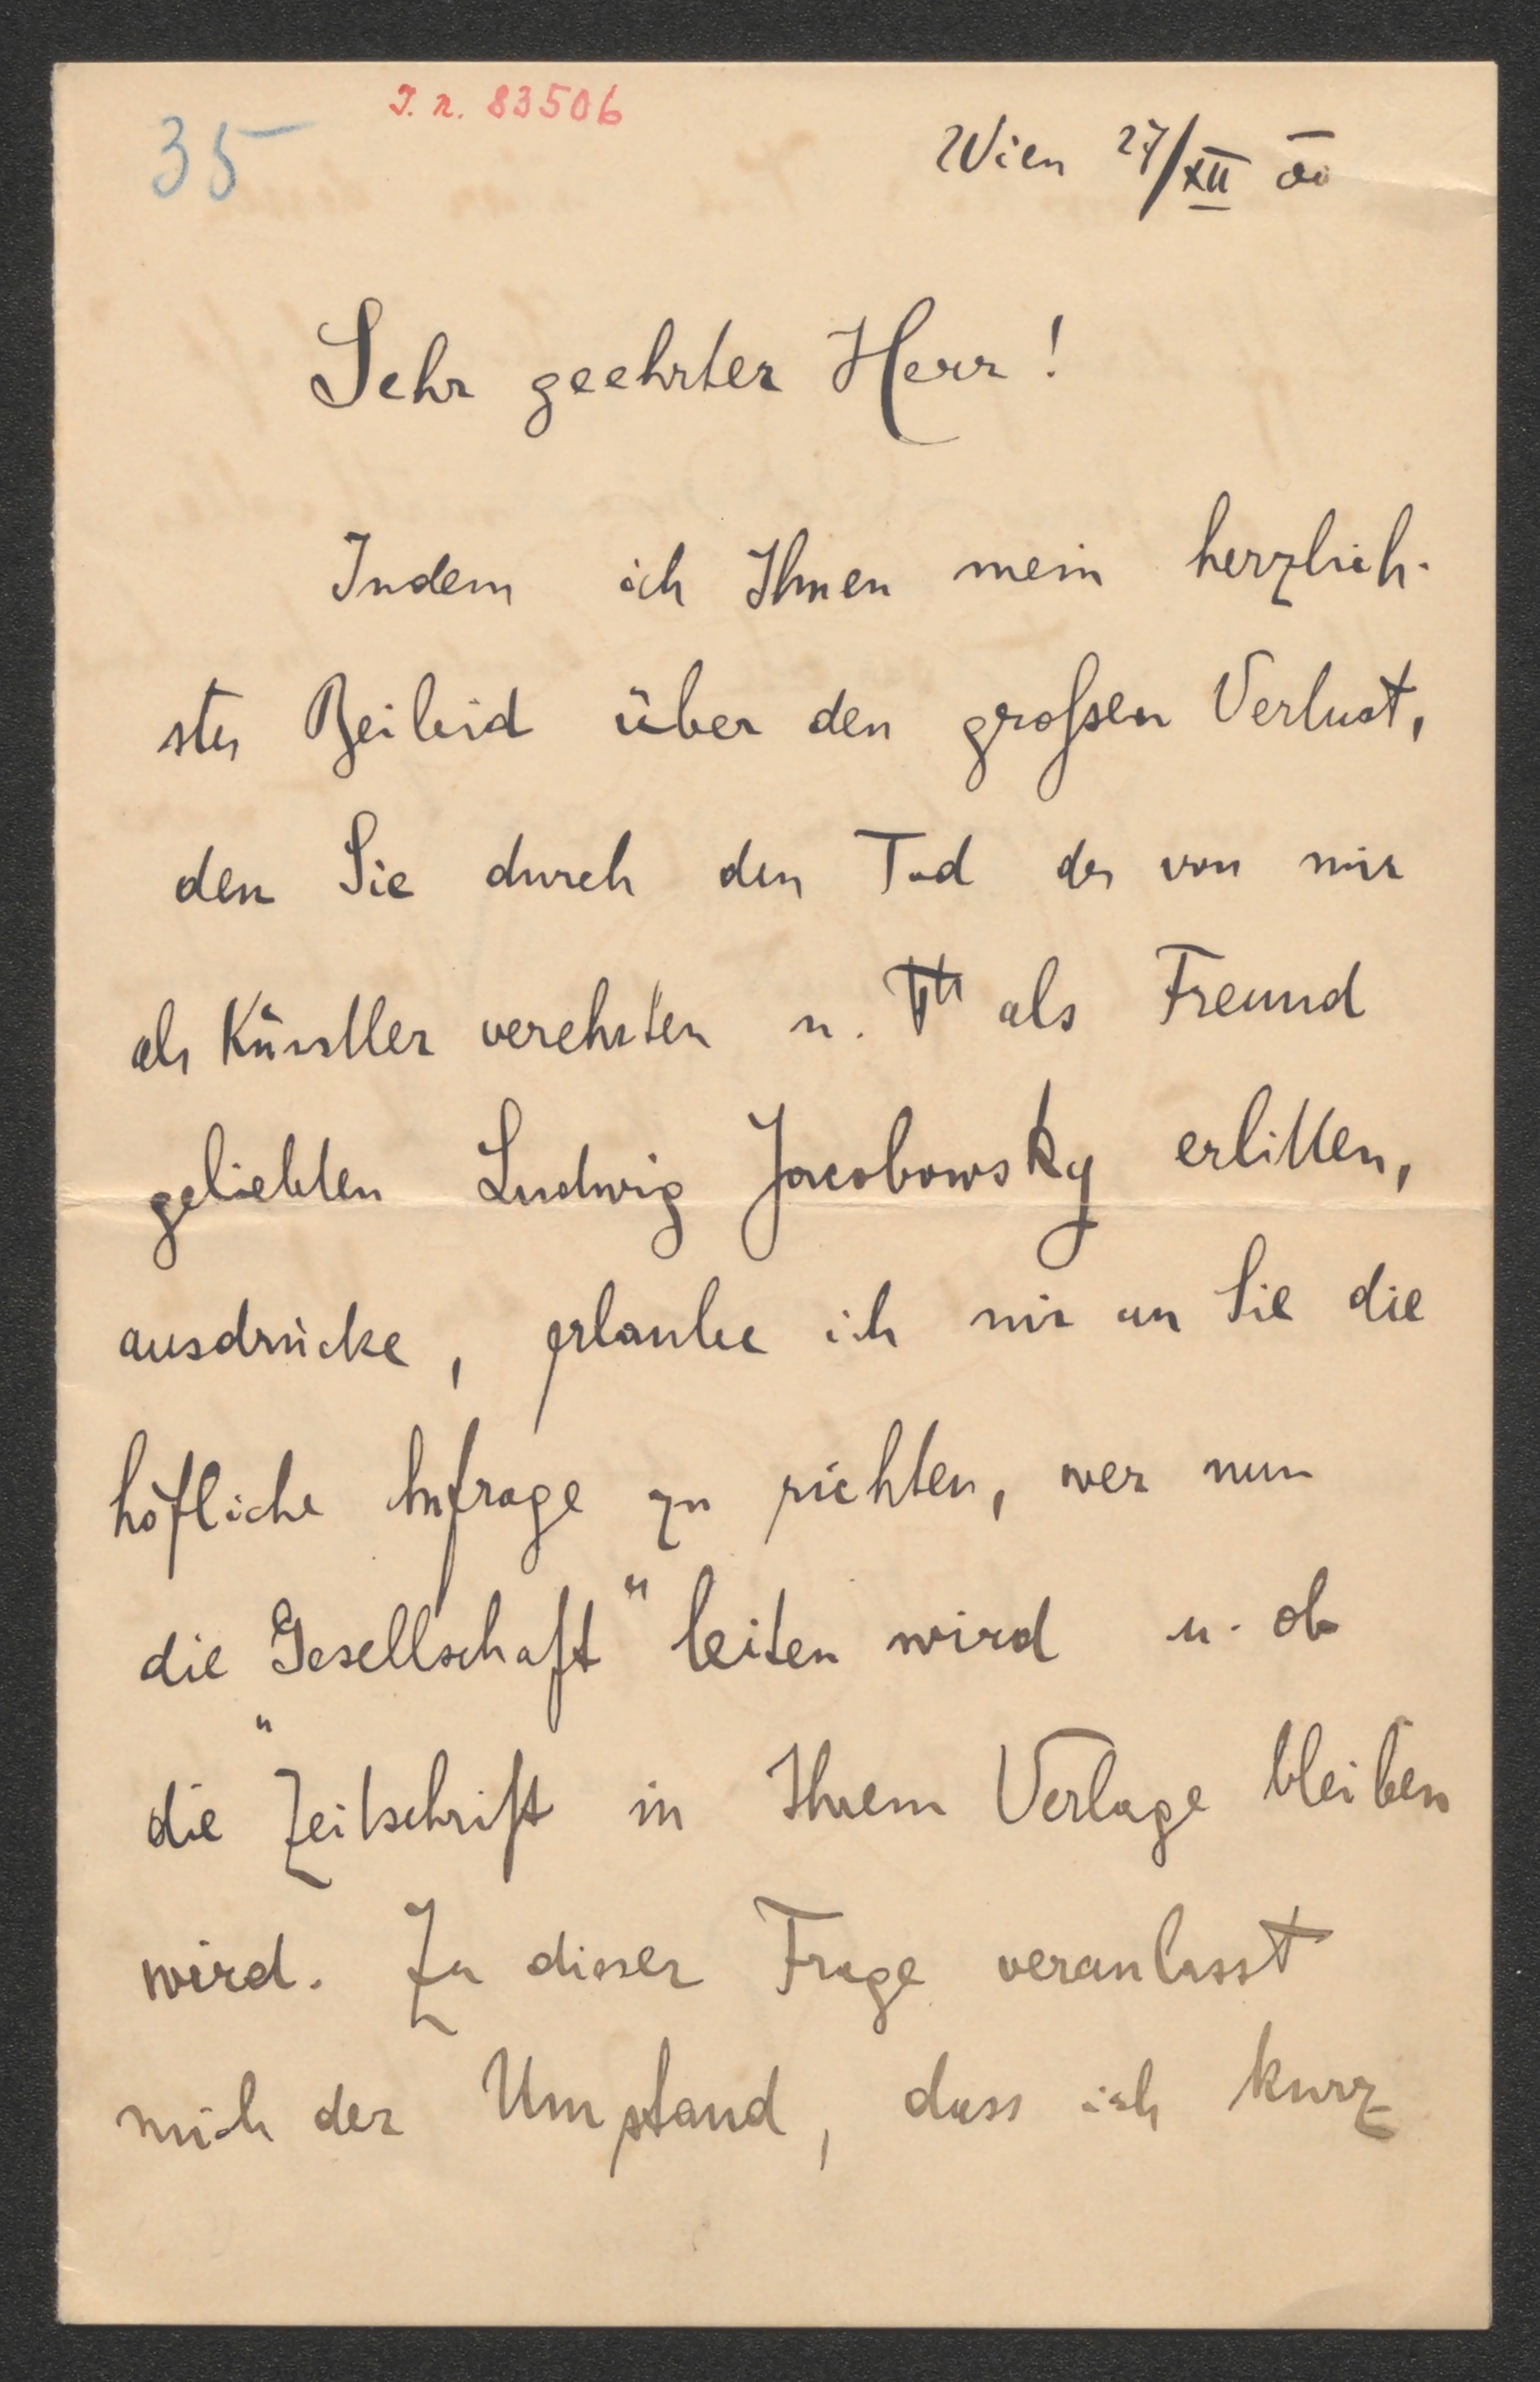 35
I. n. 83506
Wien 27/XII 00
Sehr geehrter Herr!
Indem ich Ihnen mein herzlich-
stes Beileid über den großen Verlust,
den Sie durch den Tod des von mir
als Künstler verehrten u. als Freund
geliebten Ludwig Jacobowsky erlitten,
ausdrücke, erlaube ich mir an Sie die
höfliche Anfrage zu richten, wer nun
die "Gesellschaft" leiten wird u. ob
die Zeitschrift in Ihrem Verlage bleiben
wird. Zu dieser Frage veranlasst
mich der Umstand, dass ich kurz